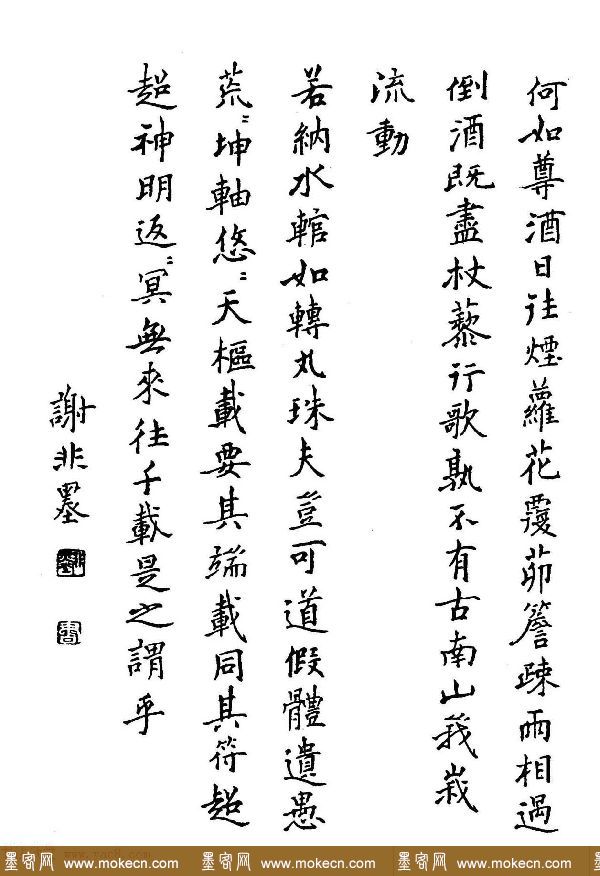 何如尊酒日往煙蘿花覆茆簷疎雨相過
倒酒既盡杖藜行歌孰不有古南山峩峩
流動
若納水輨如轉丸珠夫豈可道假體遺愚
荒〻坤軸悠〻天樞載要其端載同其符超
超神明返〻冥無來往千載是之謂乎
謝非墨
墨客网 www.mokecn.com 墨客网 www.mokecn.com 墨客网 www.mokecn.com